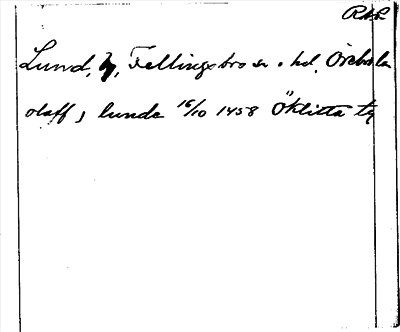 Lund, Fellingsbro sn o hd, Örebro län
olaff j lunde 16/10 1458 Öklitta